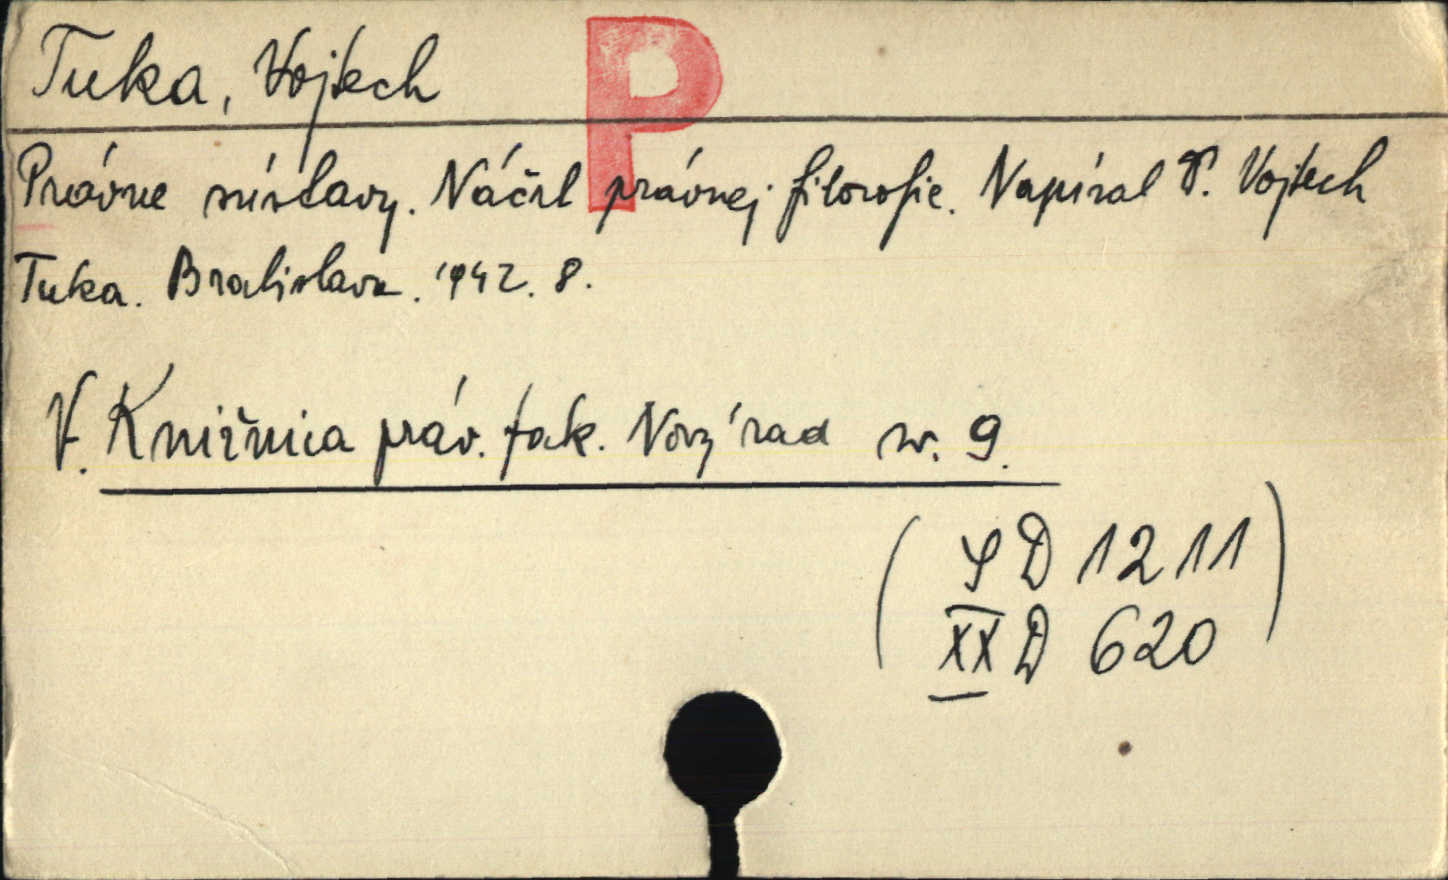 Tuka, Vojtech
P
Právne sústavy. Náčrt právnej filozofie. Napísal Dr. Vojtech
Tuka. Bratislava. 1942. 8.
V. Knižnica práv. fak. Nový rad zv. 9.
( SD 1211
XX D 620 )